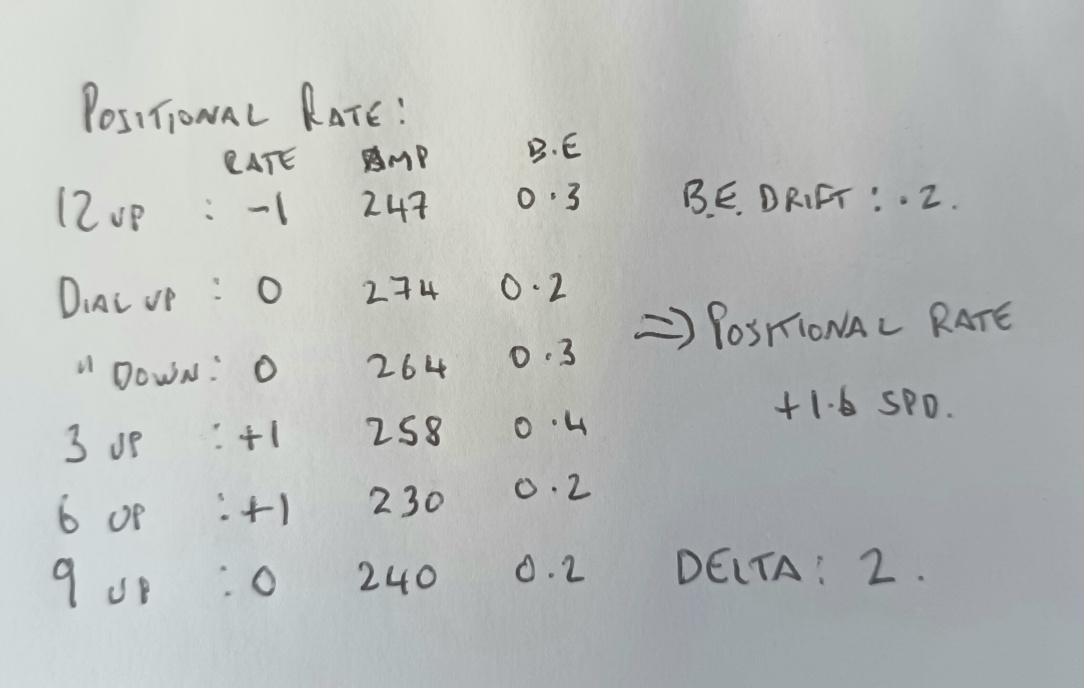 POSITIONAL RATE:
RATE AMP B.E
12 UP : -1 247 0.3 B.E. DRIFT : .2.
DIAL UP : 0 274 0.2
" DOWN : 0 264 0.3 => POSITIONAL RATE
+1.6 SPD.
3 UP : +1 258 0.4
6 UP : +1 230 0.2
9 UP : 0 240 0.2 DELTA : 2.